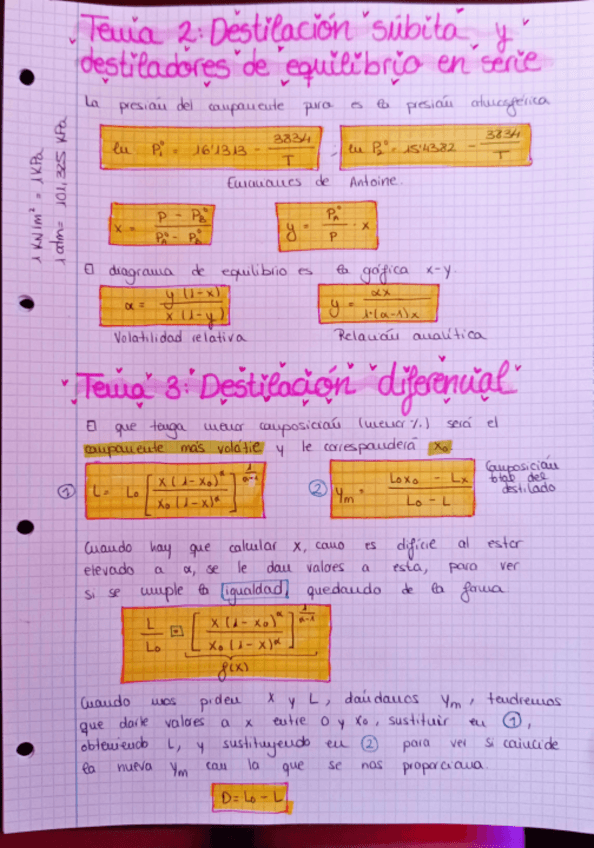 Tema 2: Destilación súbita y
destiladores de equilibrio en serie
La presión del componente puro es la presión atmosférica
ln P₁° = 16'1313 - 3834/T ; ln P₂° = 15'4382 - 3834/T
Ecuaciones de Antoine.
1 KN/m² = 1 KPa
1 atm = 101,325 KPa
x = (P - P_B°)/(P_A° - P_B°)
y = P_A°/P · x
El diagrama de equilibrio es la gráfica x-y.
α = y(1-x)/x(1-y)
y = αx/1+(α-1)x
Volatilidad relativa
Relación analítica
Tema 3: Destilación diferencial
El que tenga menor composición (menor %) será el
componente más volátil y le corresponderá x₀
① L = L₀ [x(1-x₀)^α / x₀(1-x)^α]^(1/(α-1))
② Ym = (L₀x₀ - Lx)/(L₀ - L)
Composición
total del
destilado
Cuando hay que calcular x, como es difícil al estar
elevado a α, se le dan valores a esta, para ver
si se cumple la igualdad, quedando de la forma
L/L₀ = [x(1-x₀)^α / x₀(1-x)^α]^(1/(α-1))
f(x)
Cuando nos piden x y L, dándonos Ym, tendremos
que darle valores a x entre 0 y x₀, sustituir en ①,
obteniendo L, y sustituyendo en ② para ver si coincide
la nueva Ym con la que se nos proporciona.
D = L₀ - L